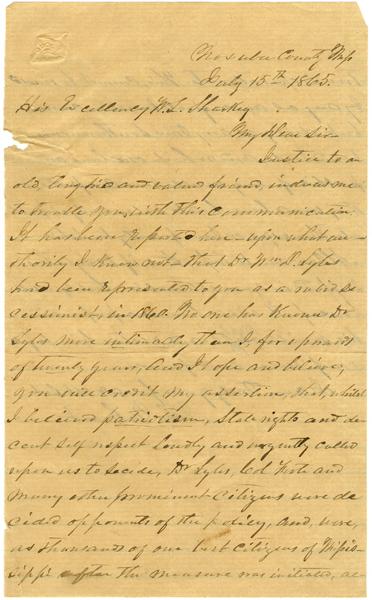 Noxubee County Miss
July 15th 1865.
His Excellency W. L. Sharkey
My Dear Sir—
Justice to an
old, long tried and valued friend, induces me
to trouble you with this communication.
It has been reported here—upon what au-
thority I know not—that Dr Wm D. Lyles
had been represented to you as a rabid se-
cessionist, in 1860. No one has known Dr
Lyles more intimately than I, for upwards
of twenty years, and I hope and believe,
you will credit my assertion, that, whilst
I believed patriotism, State rights and de-
cent self respect loudly and urgently called
upon us to secede, Dr Lyles, Col Foote and
many other prominent citizens were de-
cided opponents of the policy, and, were,
as thousands of our best citizens of Missis-
sippi after the measure was initiated, ac-